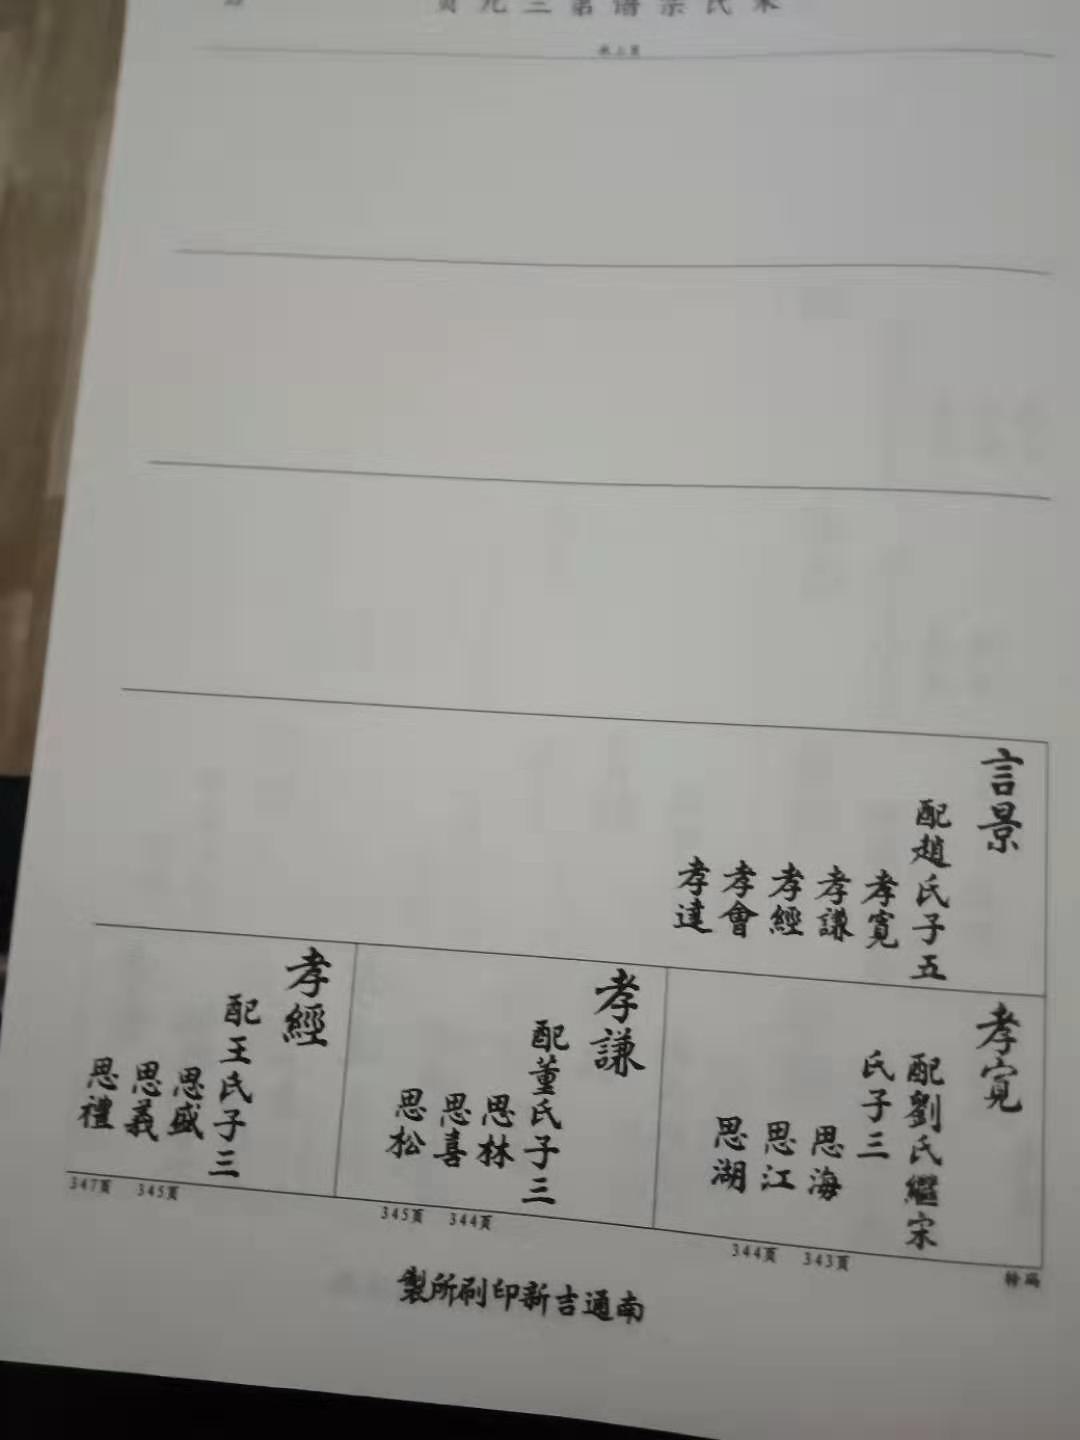 氏宗譜第三九頁
承上頁
言景
配趙氏子五
孝寬
孝謙
孝經
孝會
孝達
孝寬
配劉氏繼宋
氏子三
思海
思江
思湖
孝謙
配董氏子三
思林
思喜
思松
孝經
配王氏子三
思盛
思義
思禮
轉瑞
343頁
344頁
344頁
345頁
345頁
347頁
南通吉新印刷所製